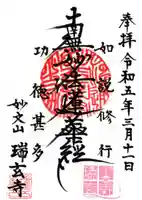 奉拝 令和五年三月十一日
如説修行
南無妙法蓮華経
功徳甚多
妙文山 瑞玄寺